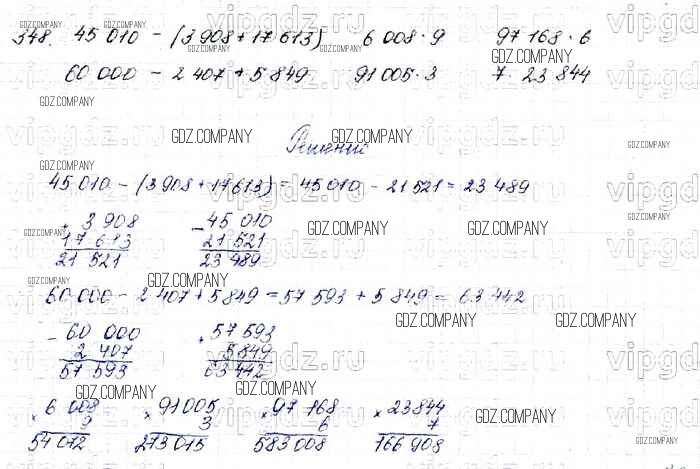 348. 45 010 - (3 908 + 17 613) 6 008 · 9 97 168 · 6
60 000 - 2 407 + 5 849 91 005 · 3 7 · 23 844
Решение
45 010 - (3 908 + 17 613) = 45 010 - 21 521 = 23 489
+ 3 908 - 45 010
17 613 21 521
21 521 23 489
60 000 - 2 407 + 5 849 = 57 593 + 5 849 = 63 442
- 60 000 + 57 593
2 407 5 849
57 593 63 442
× 6 008 × 91 005 × 97 168 × 23 844
9 3 6 7
54 072 273 015 583 008 166 908
GDZ.COMPANY
vipgdz.ru